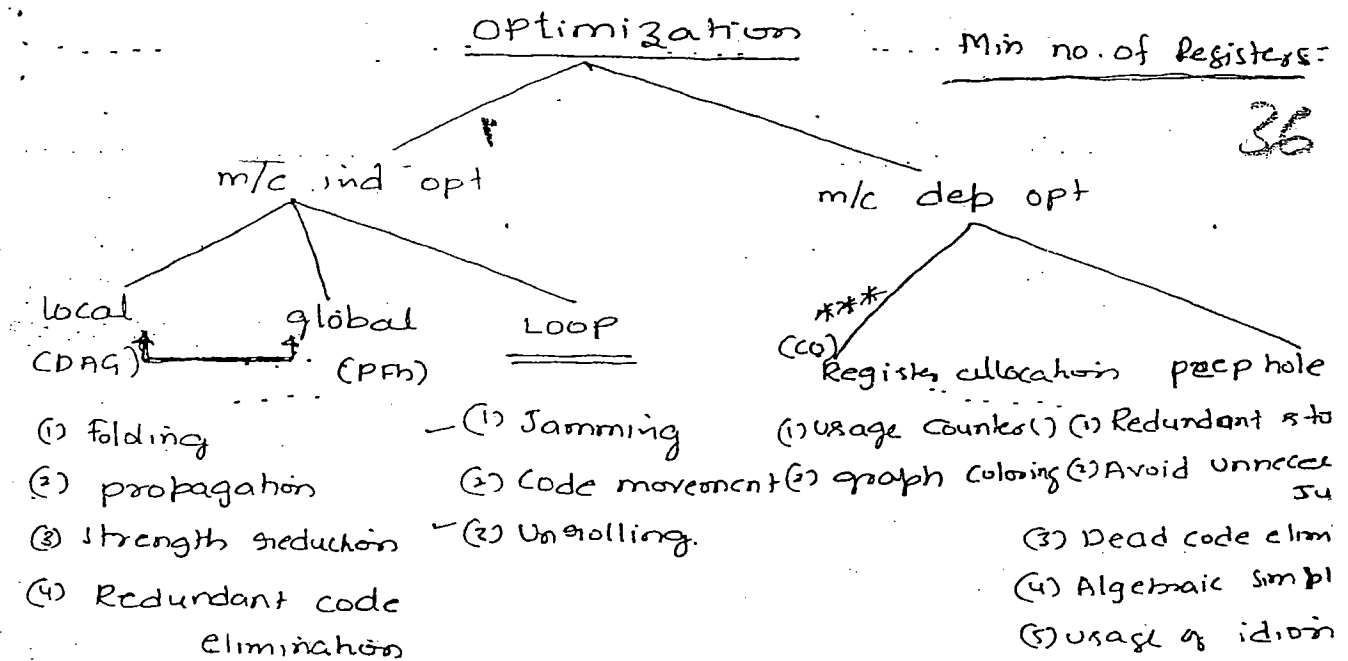 Optimization
Min no. of Registers:
36
m/c ind opt
m/c dep opt
local
global
LOOP
***
(DAG)
(co)
Register allocation
peep hole
(1) folding
(2) propagation
(3) strength reduction
(4) Redundant code
elimination
(1) Jamming
(2) Code movement
(2) Unrolling.
(1) usage counter()
(2) graph coloring
(1) Redundant sto
(2) Avoid unneces
Ju
(3) Dead code elim
(4) Algebraic simpl
(5) usage of idiom